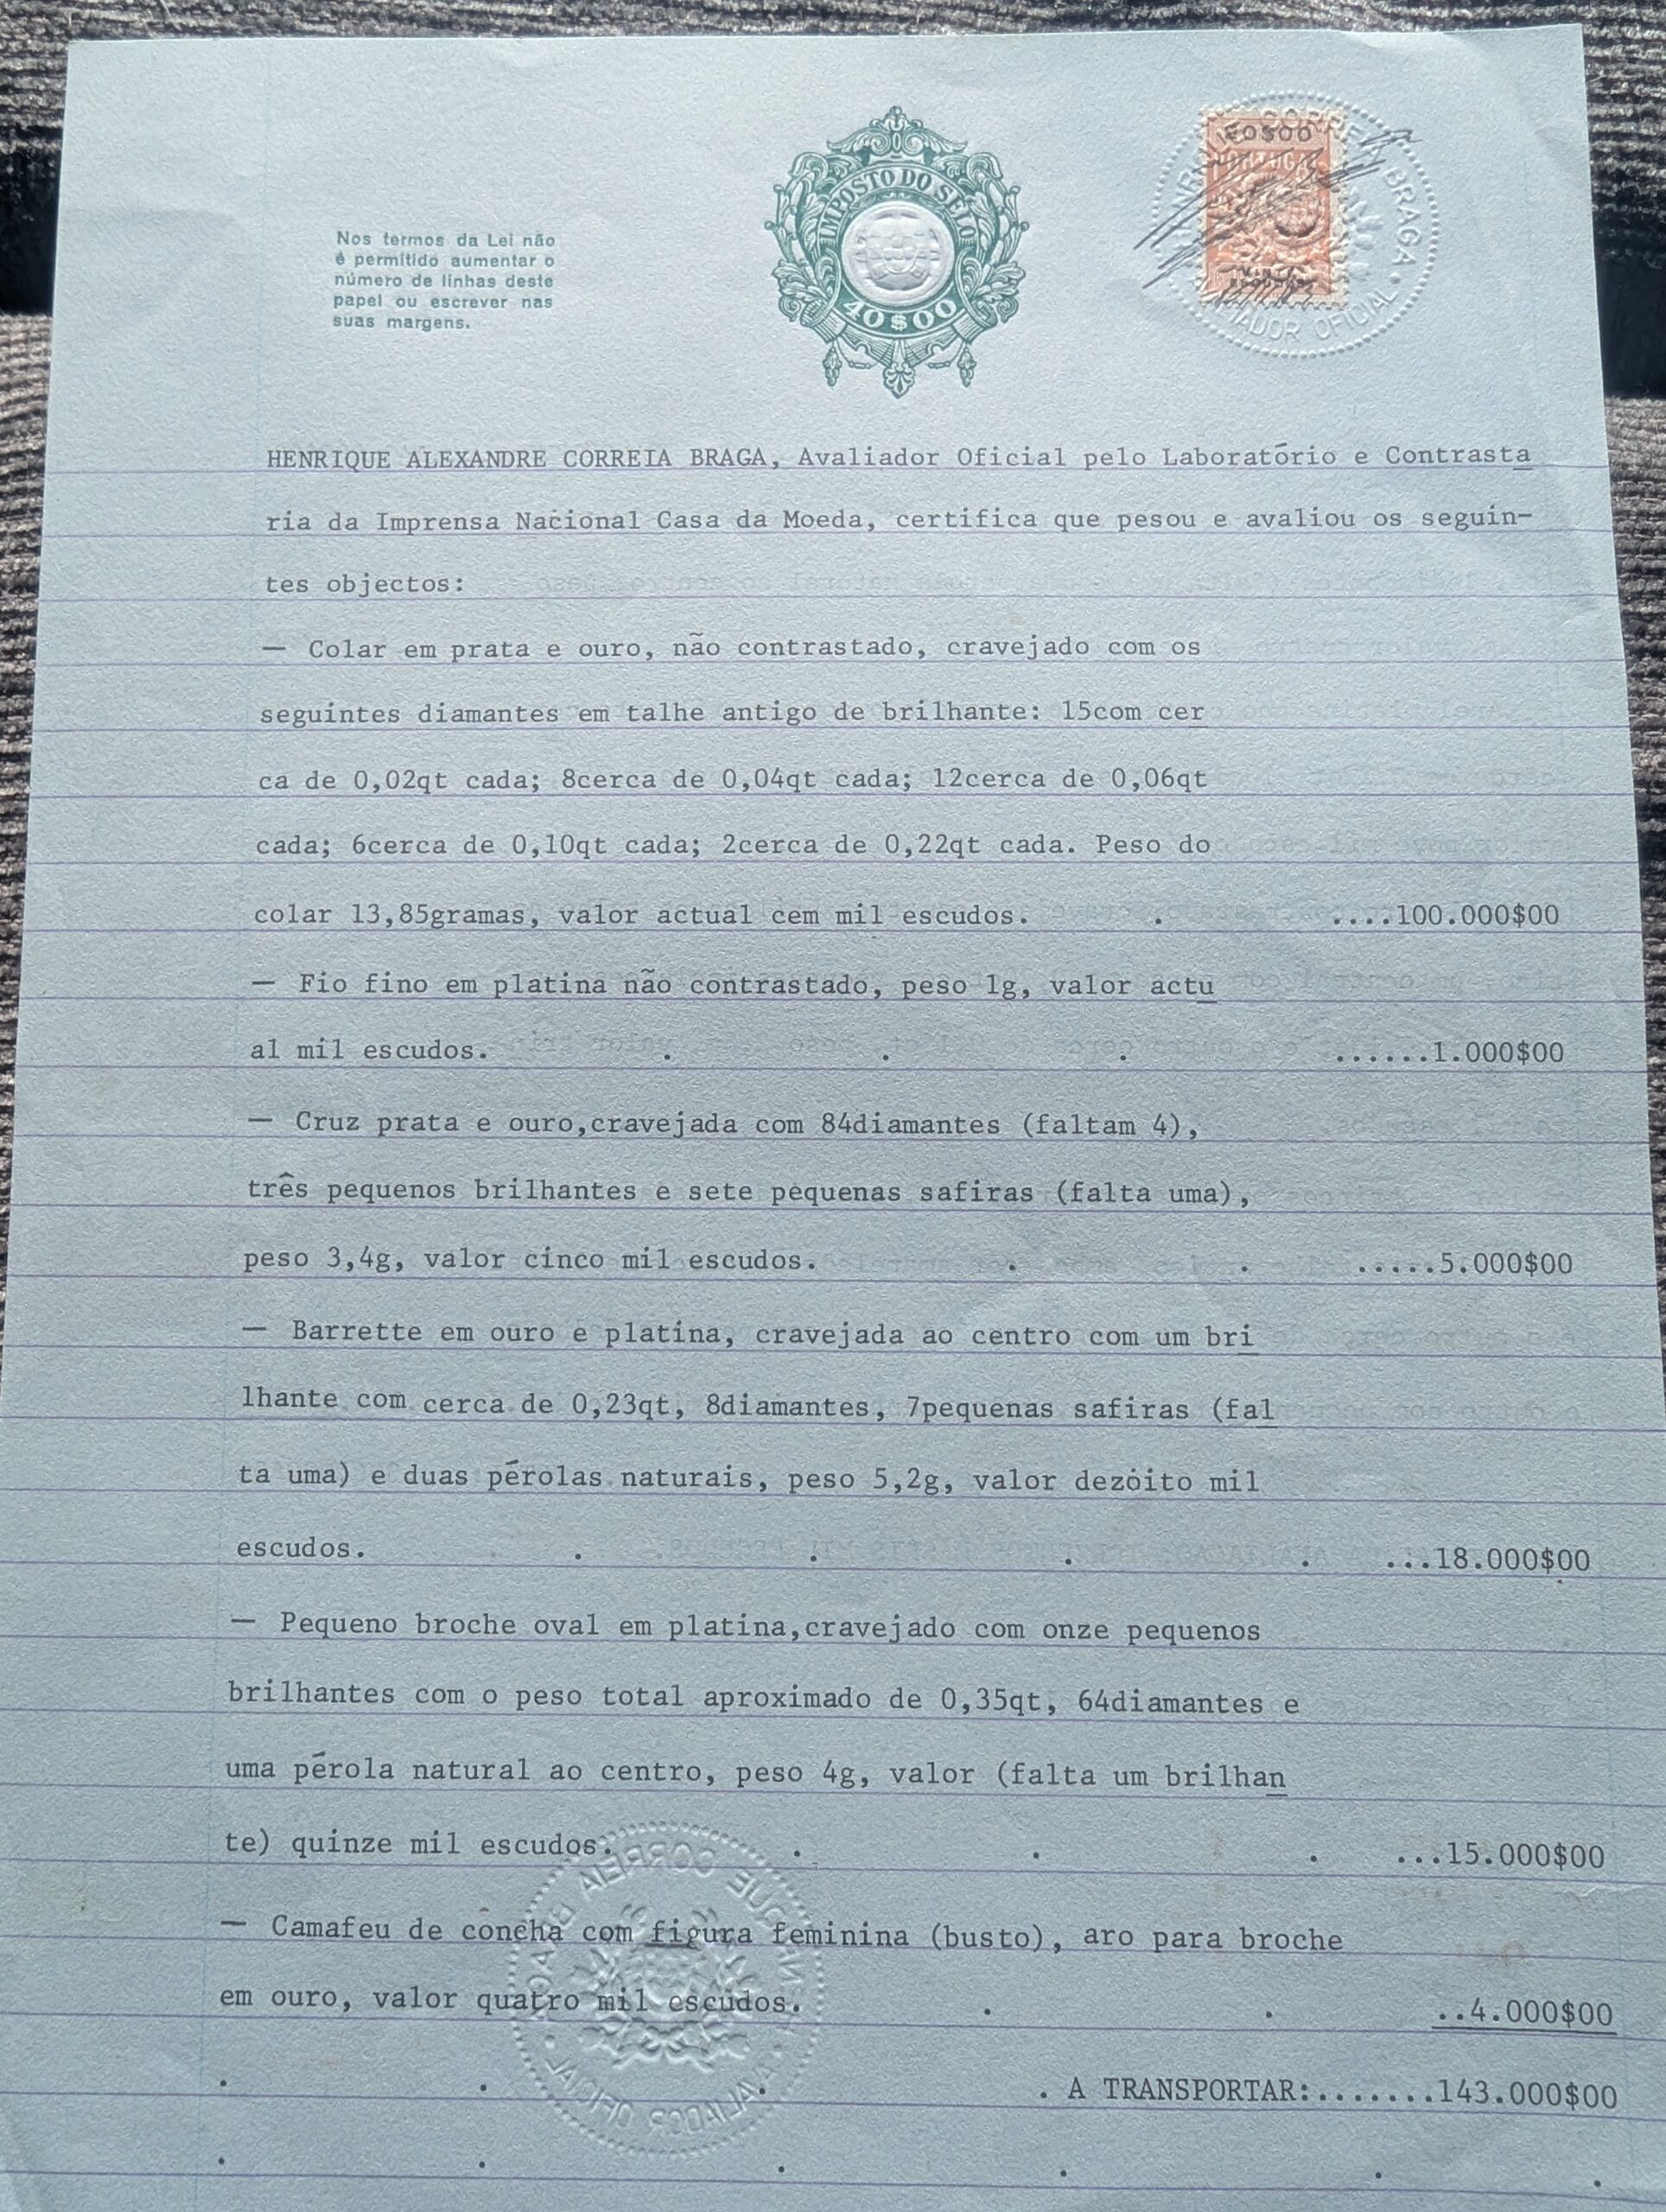 Nos termos da Lei não
é permitido aumentar o
número de linhas deste
papel ou escrever nas
suas margens.
IMPOSTO DO SELO
40$00
PORTUGAL
CORREIA BRAGA
OFICIAL
HENRIQUE ALEXANDRE CORREIA BRAGA, Avaliador Oficial pelo Laboratório e Contrasta
ria da Imprensa Nacional Casa da Moeda, certifica que pesou e avaliou os seguin-
tes objectos:
— Colar em prata e ouro, não contrastado, cravejado com os
seguintes diamantes em talhe antigo de brilhante: 15com cer
ca de 0,02qt cada; 8cerca de 0,04qt cada; 12cerca de 0,06qt
cada; 6cerca de 0,10qt cada; 2cerca de 0,22qt cada. Peso do
colar 13,85gramas, valor actual cem mil escudos. . ....100.000$00
— Fio fino em platina não contrastado, peso 1g, valor actu
al mil escudos. . . . ......1.000$00
— Cruz prata e ouro,cravejada com 84diamantes (faltam 4),
três pequenos brilhantes e sete pequenas safiras (falta uma),
peso 3,4g, valor cinco mil escudos. . . .....5.000$00
— Barrette em ouro e platina, cravejada ao centro com um bri
lhante com cerca de 0,23qt, 8diamantes, 7pequenas safiras (fal
ta uma) e duas pérolas naturais, peso 5,2g, valor dezóito mil
escudos. . . . . ...18.000$00
— Pequeno broche oval em platina,cravejado com onze pequenos
brilhantes com o peso total aproximado de 0,35qt, 64diamantes e
uma pérola natural ao centro, peso 4g, valor (falta um brilhan
te) quinze mil escudos. . . . ...15.000$00
— Camafeu de côncha com figura feminina (busto), aro para broche
em ouro, valor quatro mil escudos. . . ..4.000$00
. . . . A TRANSPORTAR:.......143.000$00
. . . . . .
HENRIQUE CORREIA BRAGA
AVALIADOR OFICIAL